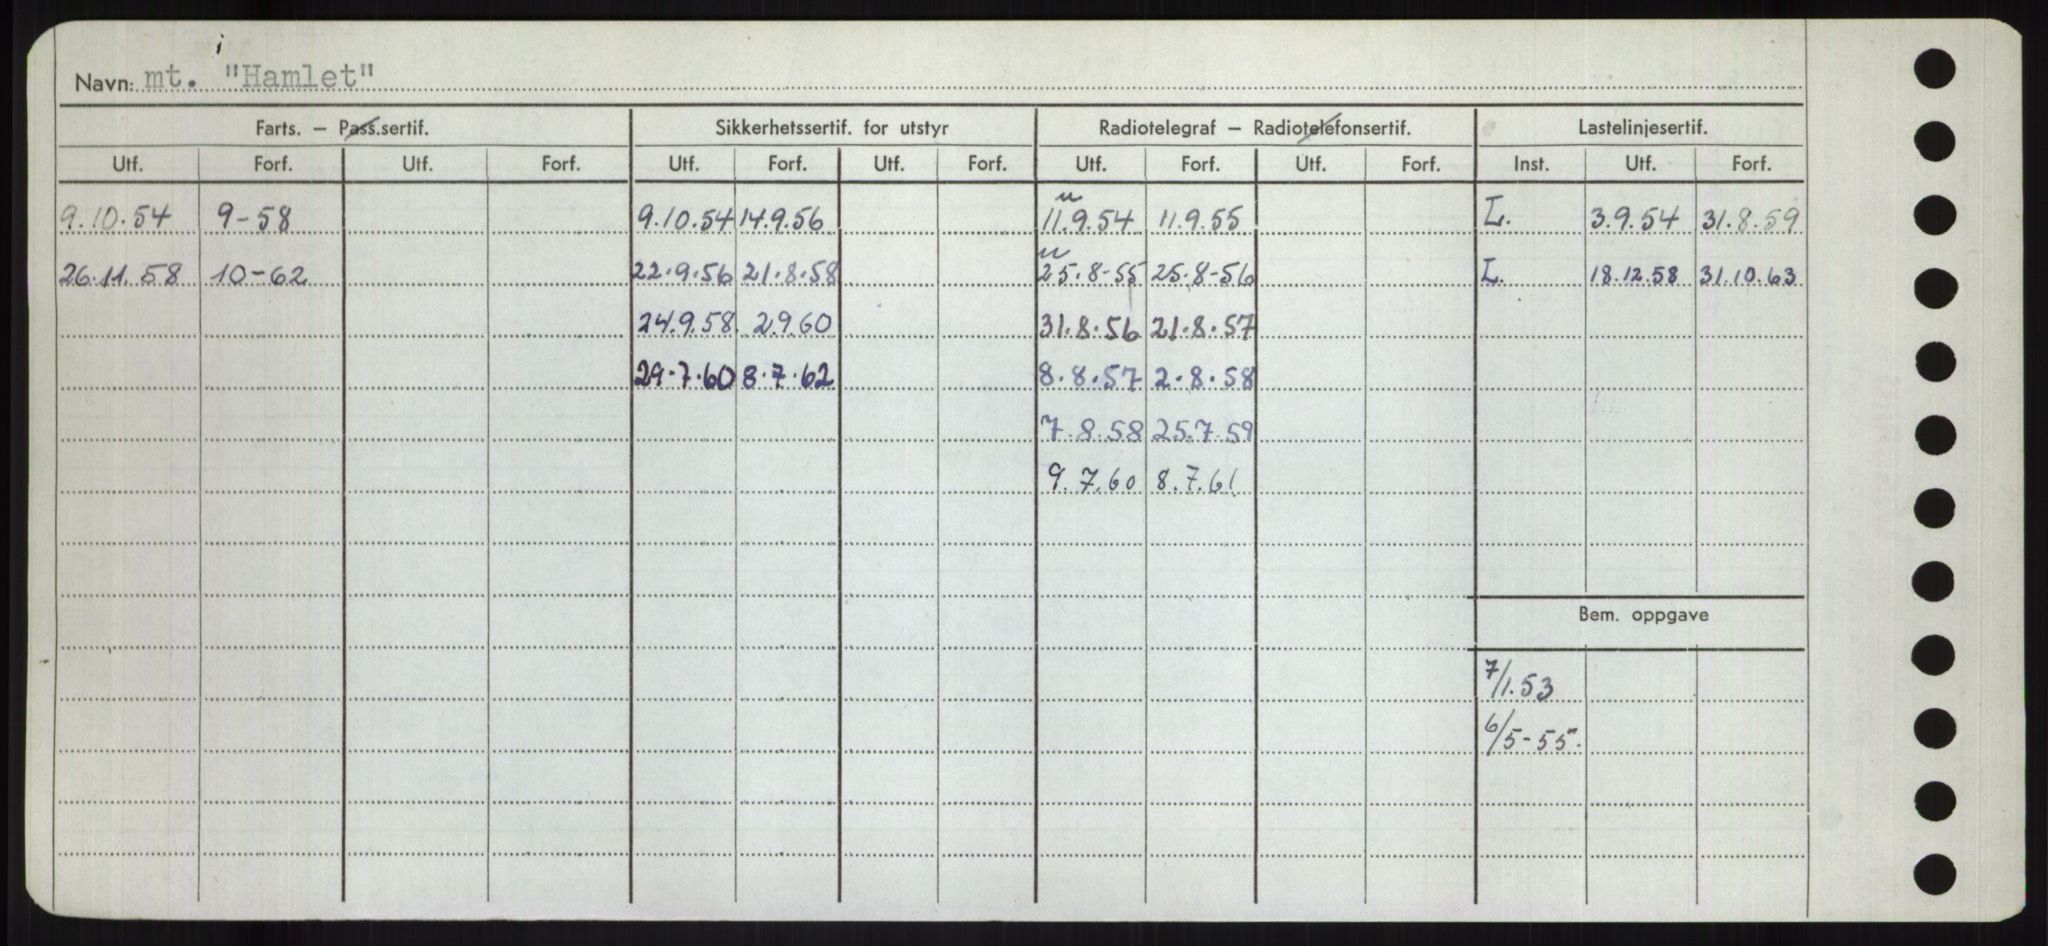 Navn: mt. "Hamlet"
Farts. – Pass.sertif. Sikkerhetssertif. for utstyr Radiotelegraf – Radiotelefonsertif. Lastelinjesertif.
Utf. Forf. Utf. Forf. Utf. Forf. Utf. Forf. Utf. Forf. Utf. Forf. Inst. Utf. Forf.
9.10.54 9-58 9.10.54 14.9.56 11.9.54 11.9.55 L. 3.9.54 31.8.59
26.11.58 10-62 22.9.56 21.8.58 25.8-55 25.8-56 L. 18.12.58 31.10.63
24.9.58. 2.9.60 31.8.56 21.8.57
29.7.60 8.7.62 8.8.57 2.8.58
7.8.58 25.7.59
9.7.60 8.7.61
Bem. oppgave
7/1.53
6/5-55.